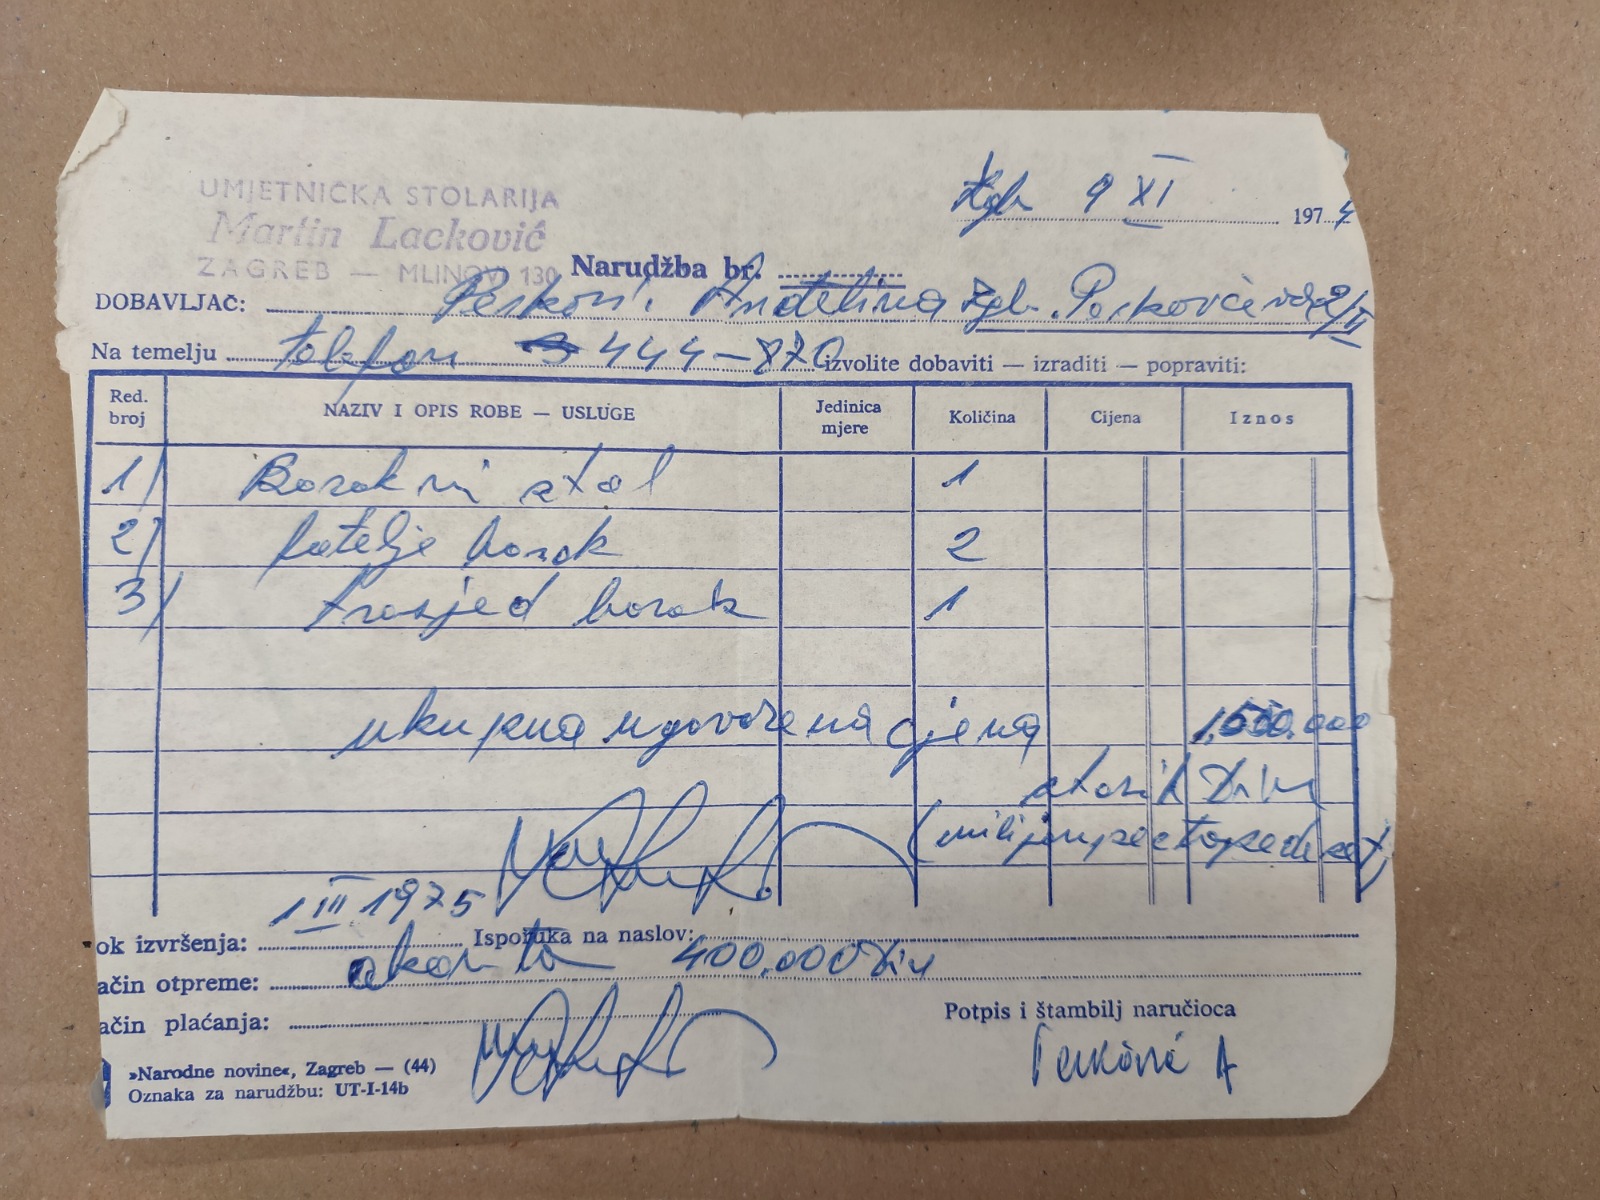 UMJETNIČKA STOLARIJA
Martin Lacković
ZAGREB — MLINOVI 130
Zgb 9 XI 1974
Narudžba br.
DOBAVLJAČ: Perković Anđelina Zgb.
Na temelju telefon 444-870 izvolite dobaviti — izraditi — popraviti:
Red. broj NAZIV I OPIS ROBE — USLUGE Jedinica mjere Količina Cijena Iznos
1) Barokni stol 1
2) fotelje barok 2
3) trosjed barok 1
ukupna ugovorena cjena
starih Din
1 III 1975
ok izvršenja: Isporuka na naslov:
ačin otpreme: akonto 400.000 Din
ačin plaćanja:
Potpis i štambilj naručioca
Perković A
»Narodne novine«, Zagreb — (44)
Oznaka za narudžbu: UT-I-14b